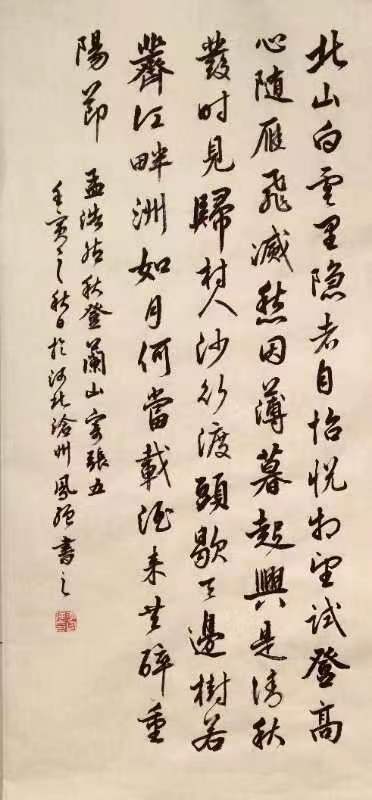 北山白雲里隐者自怡悦相望试登高
心随雁飛滅愁因薄暮起興是清秋
發时見歸村人沙行渡頭歇天邊樹若
薺江畔洲如月何當載酒来共醉重
陽節 孟浩然秋登蘭山寄張五
壬寅之秋日於河北滄州鳳 書之